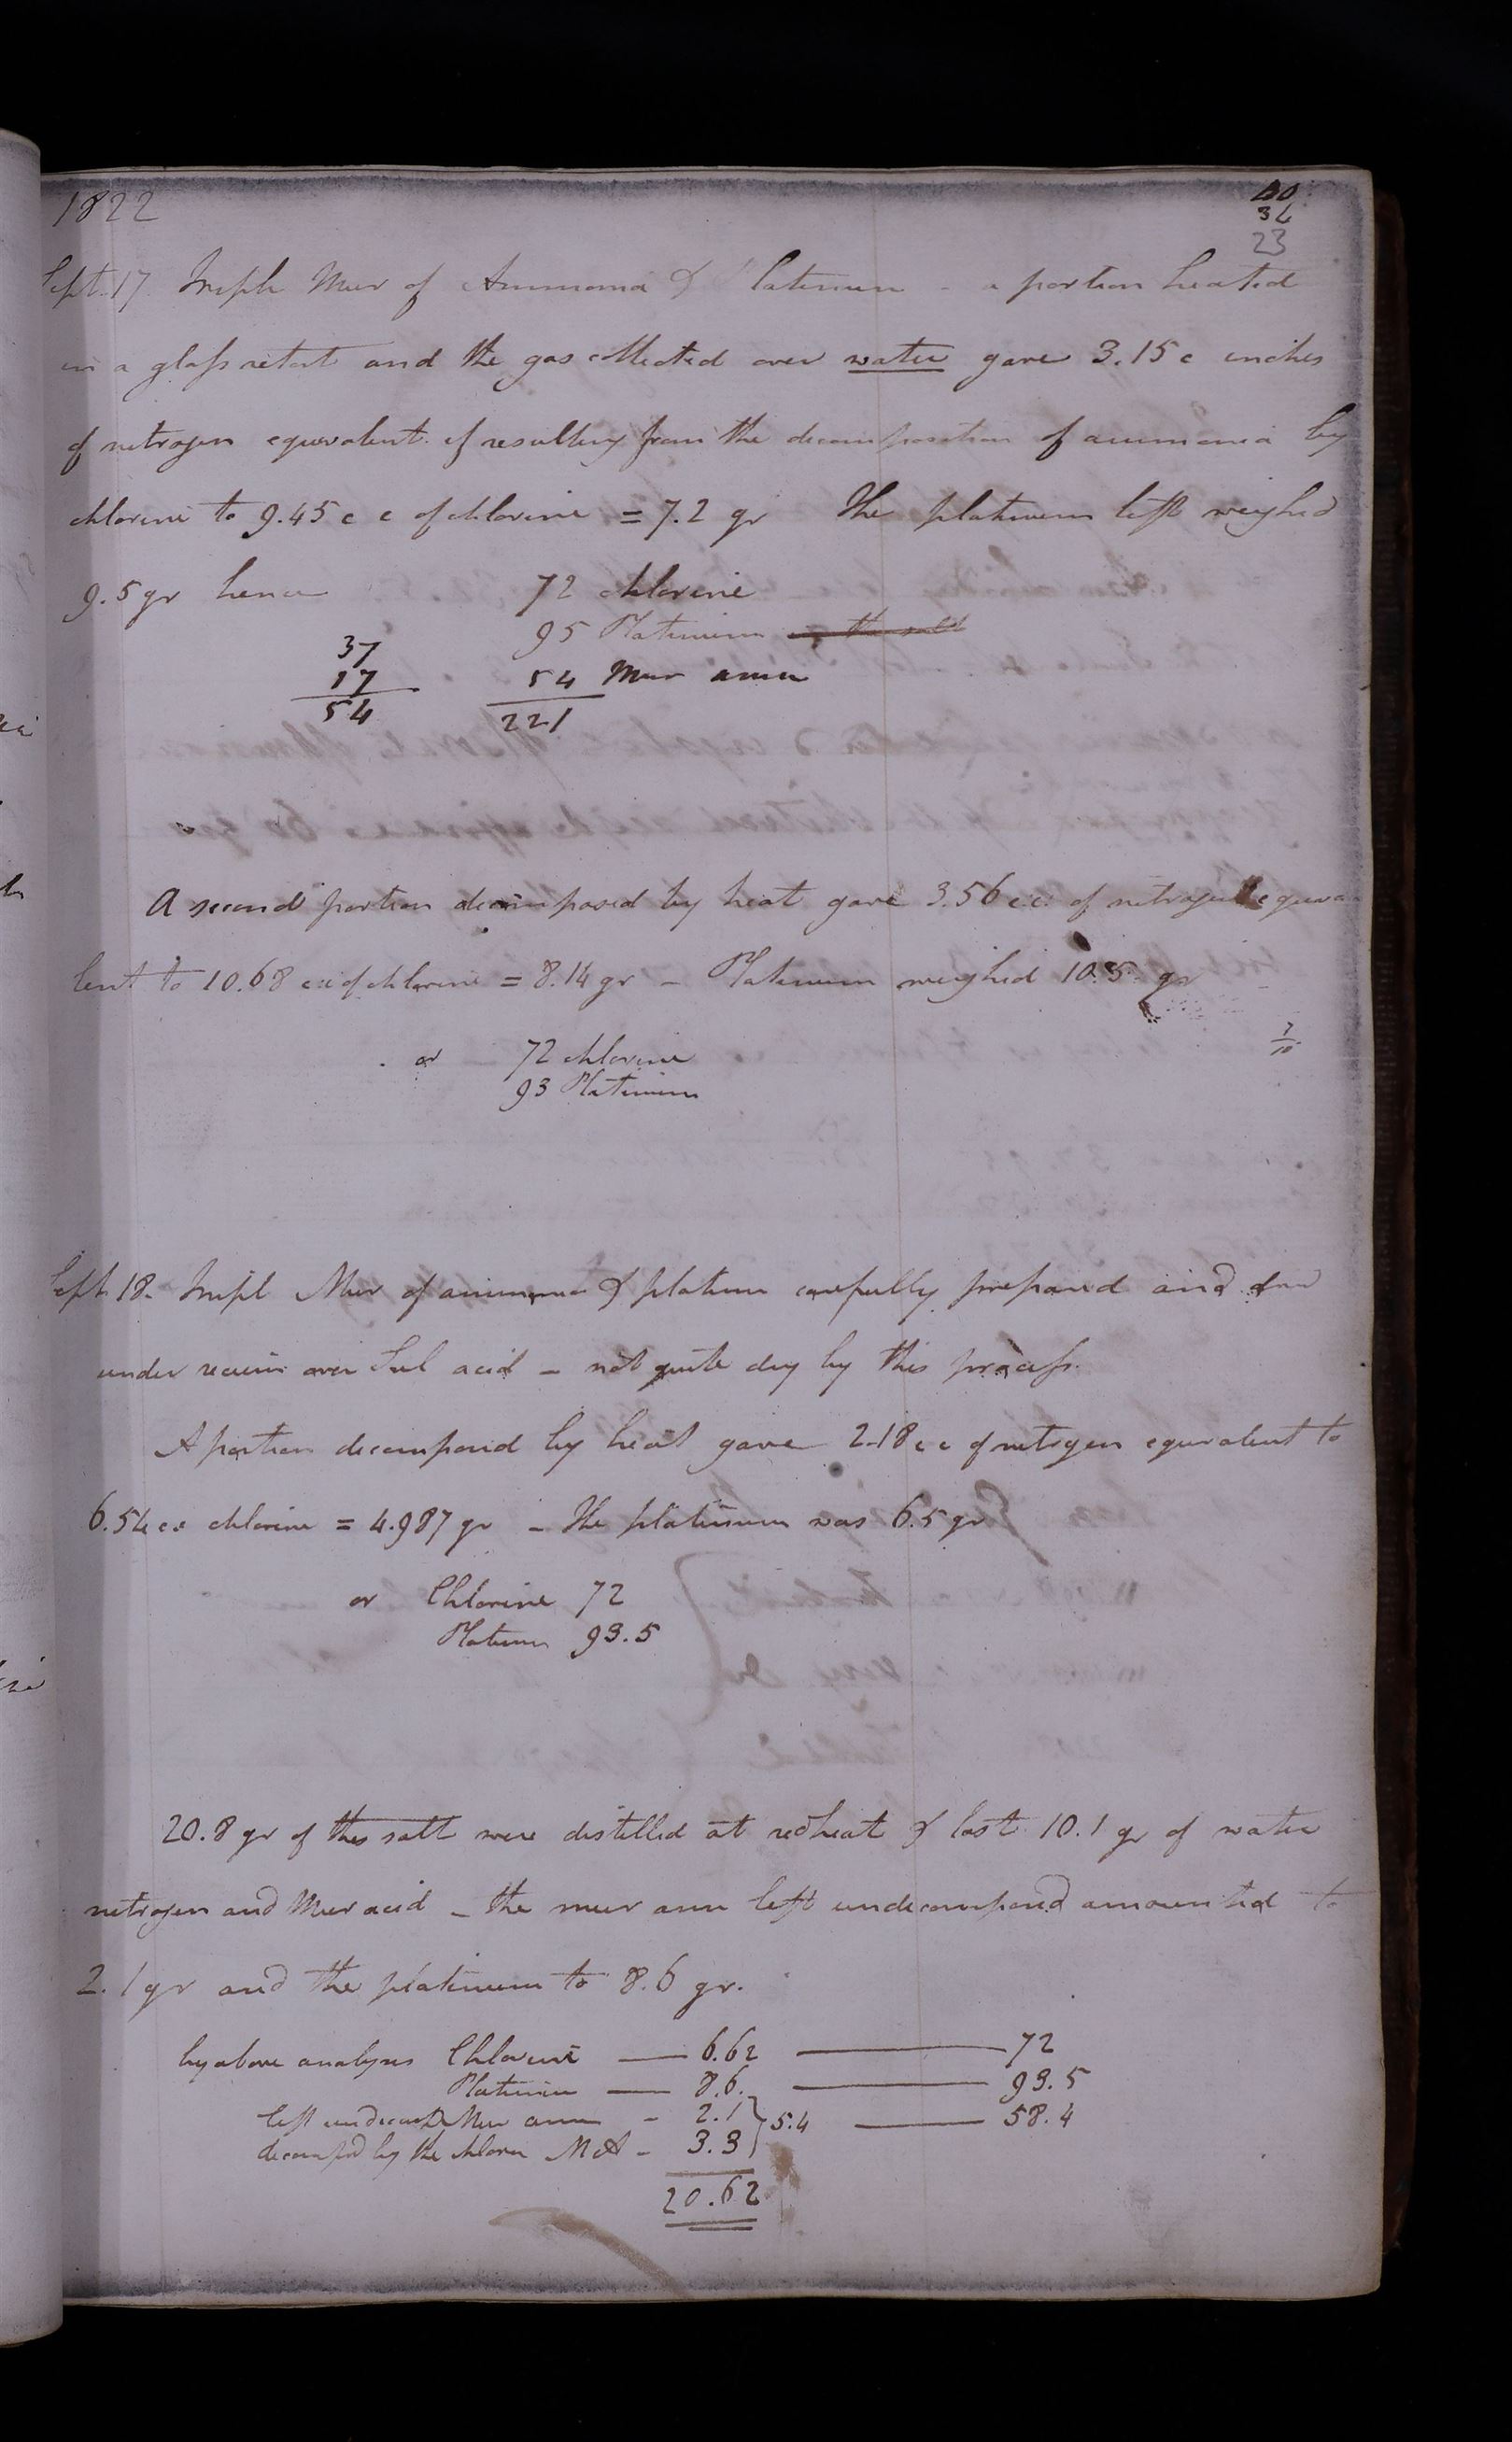 1822
40
34
23
Sept. 17. Triple Mur of Ammonia & Platinum - a portion heated
in a glass retort and the gas collected over water gave 3.15 c inches
of nitrogen equivalent if resulting from the decomposition of ammonia by
chlorine to 9.45 c c of chlorine = 7.2 gr The platinum left weighed
9.5 gr hence 72 chlorine
95 Platinum
37
17 54 Mur amm
54 221
A second portion decomposed by heat gave 3.56 c.c. of nitrogen equiva
lent to 10.68 c.c of chlorine = 8.14 gr - Platinum weighed 10.5 gr
7/10
or 72 chlorine
93 Platinum
Sept 18. Tripl Mur of ammonia & platinum carefully prepared and dried
under receiver over Sul acid - not quite dry by this process.
A portion decomposed by heat gave 2.18 c c of nitrogen equivalent to
6.54 c.c chlorine = 4.987 gr - The platinum was 6.5 gr
or Chlorine 72
Platinum 93.5
20.8 gr of this salt were distilled at red heat & lost 10.1 gr of water
nitrogen and Mur acid - the mur amm left undecomposed amounted to
2.1 gr and the platinum to 8.6 gr.
by above analyses Chlorine — 6.62 — 72
Platinum — 8.6 — 93.5
left undecomd Mur amm - 2.1 } 5.4 — 58.4
decompd by the chlorine M A - 3.3
20.62